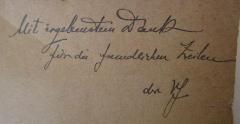 Mit ergebenstem Dank
für die freundlichen Zeilen
der